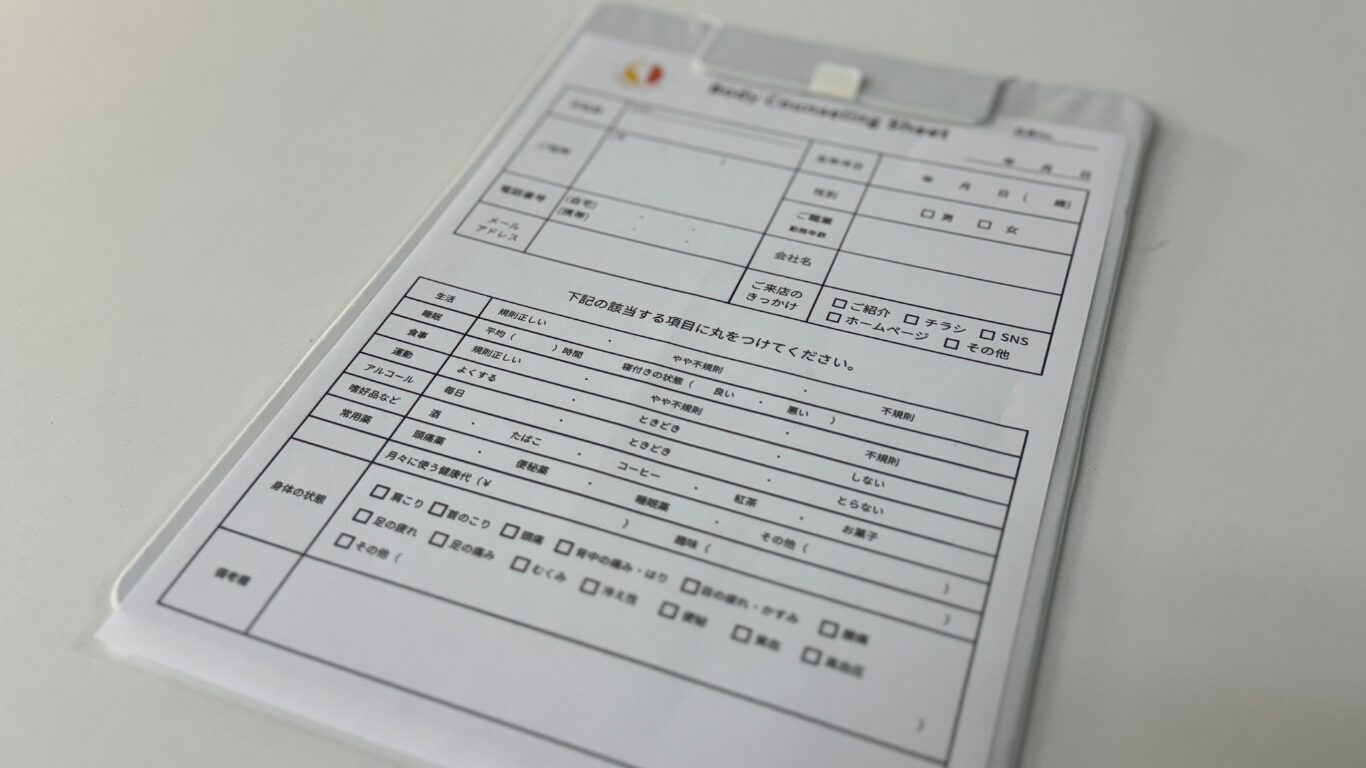 Body Counseling Sheet
年 月 日
ご住所
電話番号
(自宅)
(携帯)
メール
アドレス
生年月日
年 月 日 ( 歳)
性別
□ 男 □ 女
ご職業
勤務年数
会社名
ご来店の
きっかけ
□ ご紹介 □ チラシ □ SNS
□ ホームページ □ その他
下記の該当する項目に丸をつけてください。
生活 規則正しい ・ やや不規則 ・ 不規則
睡眠 平均 ( ) 時間 寝付きの状態 ( 良い ・ 悪い )
食事 規則正しい ・ やや不規則 ・ 不規則
運動 よくする ・ ときどき ・ しない
アルコール 毎日 ・ ときどき ・ とらない
嗜好品など 酒 ・ たばこ ・ コーヒー ・ 紅茶 ・ お菓子
常用薬 頭痛薬 ・ 便秘薬 ・ 睡眠薬 ・ その他 ( )
月々に使う健康代 (¥ ) 趣味 ( )
身体の状態
□ 肩こり □ 首のこり □ 頭痛 □ 背中の痛み・はり □ 目の疲れ・かすみ □ 腰痛
□ 足の疲れ □ 足の痛み □ むくみ □ 冷え性 □ 便秘 □ 貧血 □ 高血圧
□ その他 ( )
備考欄